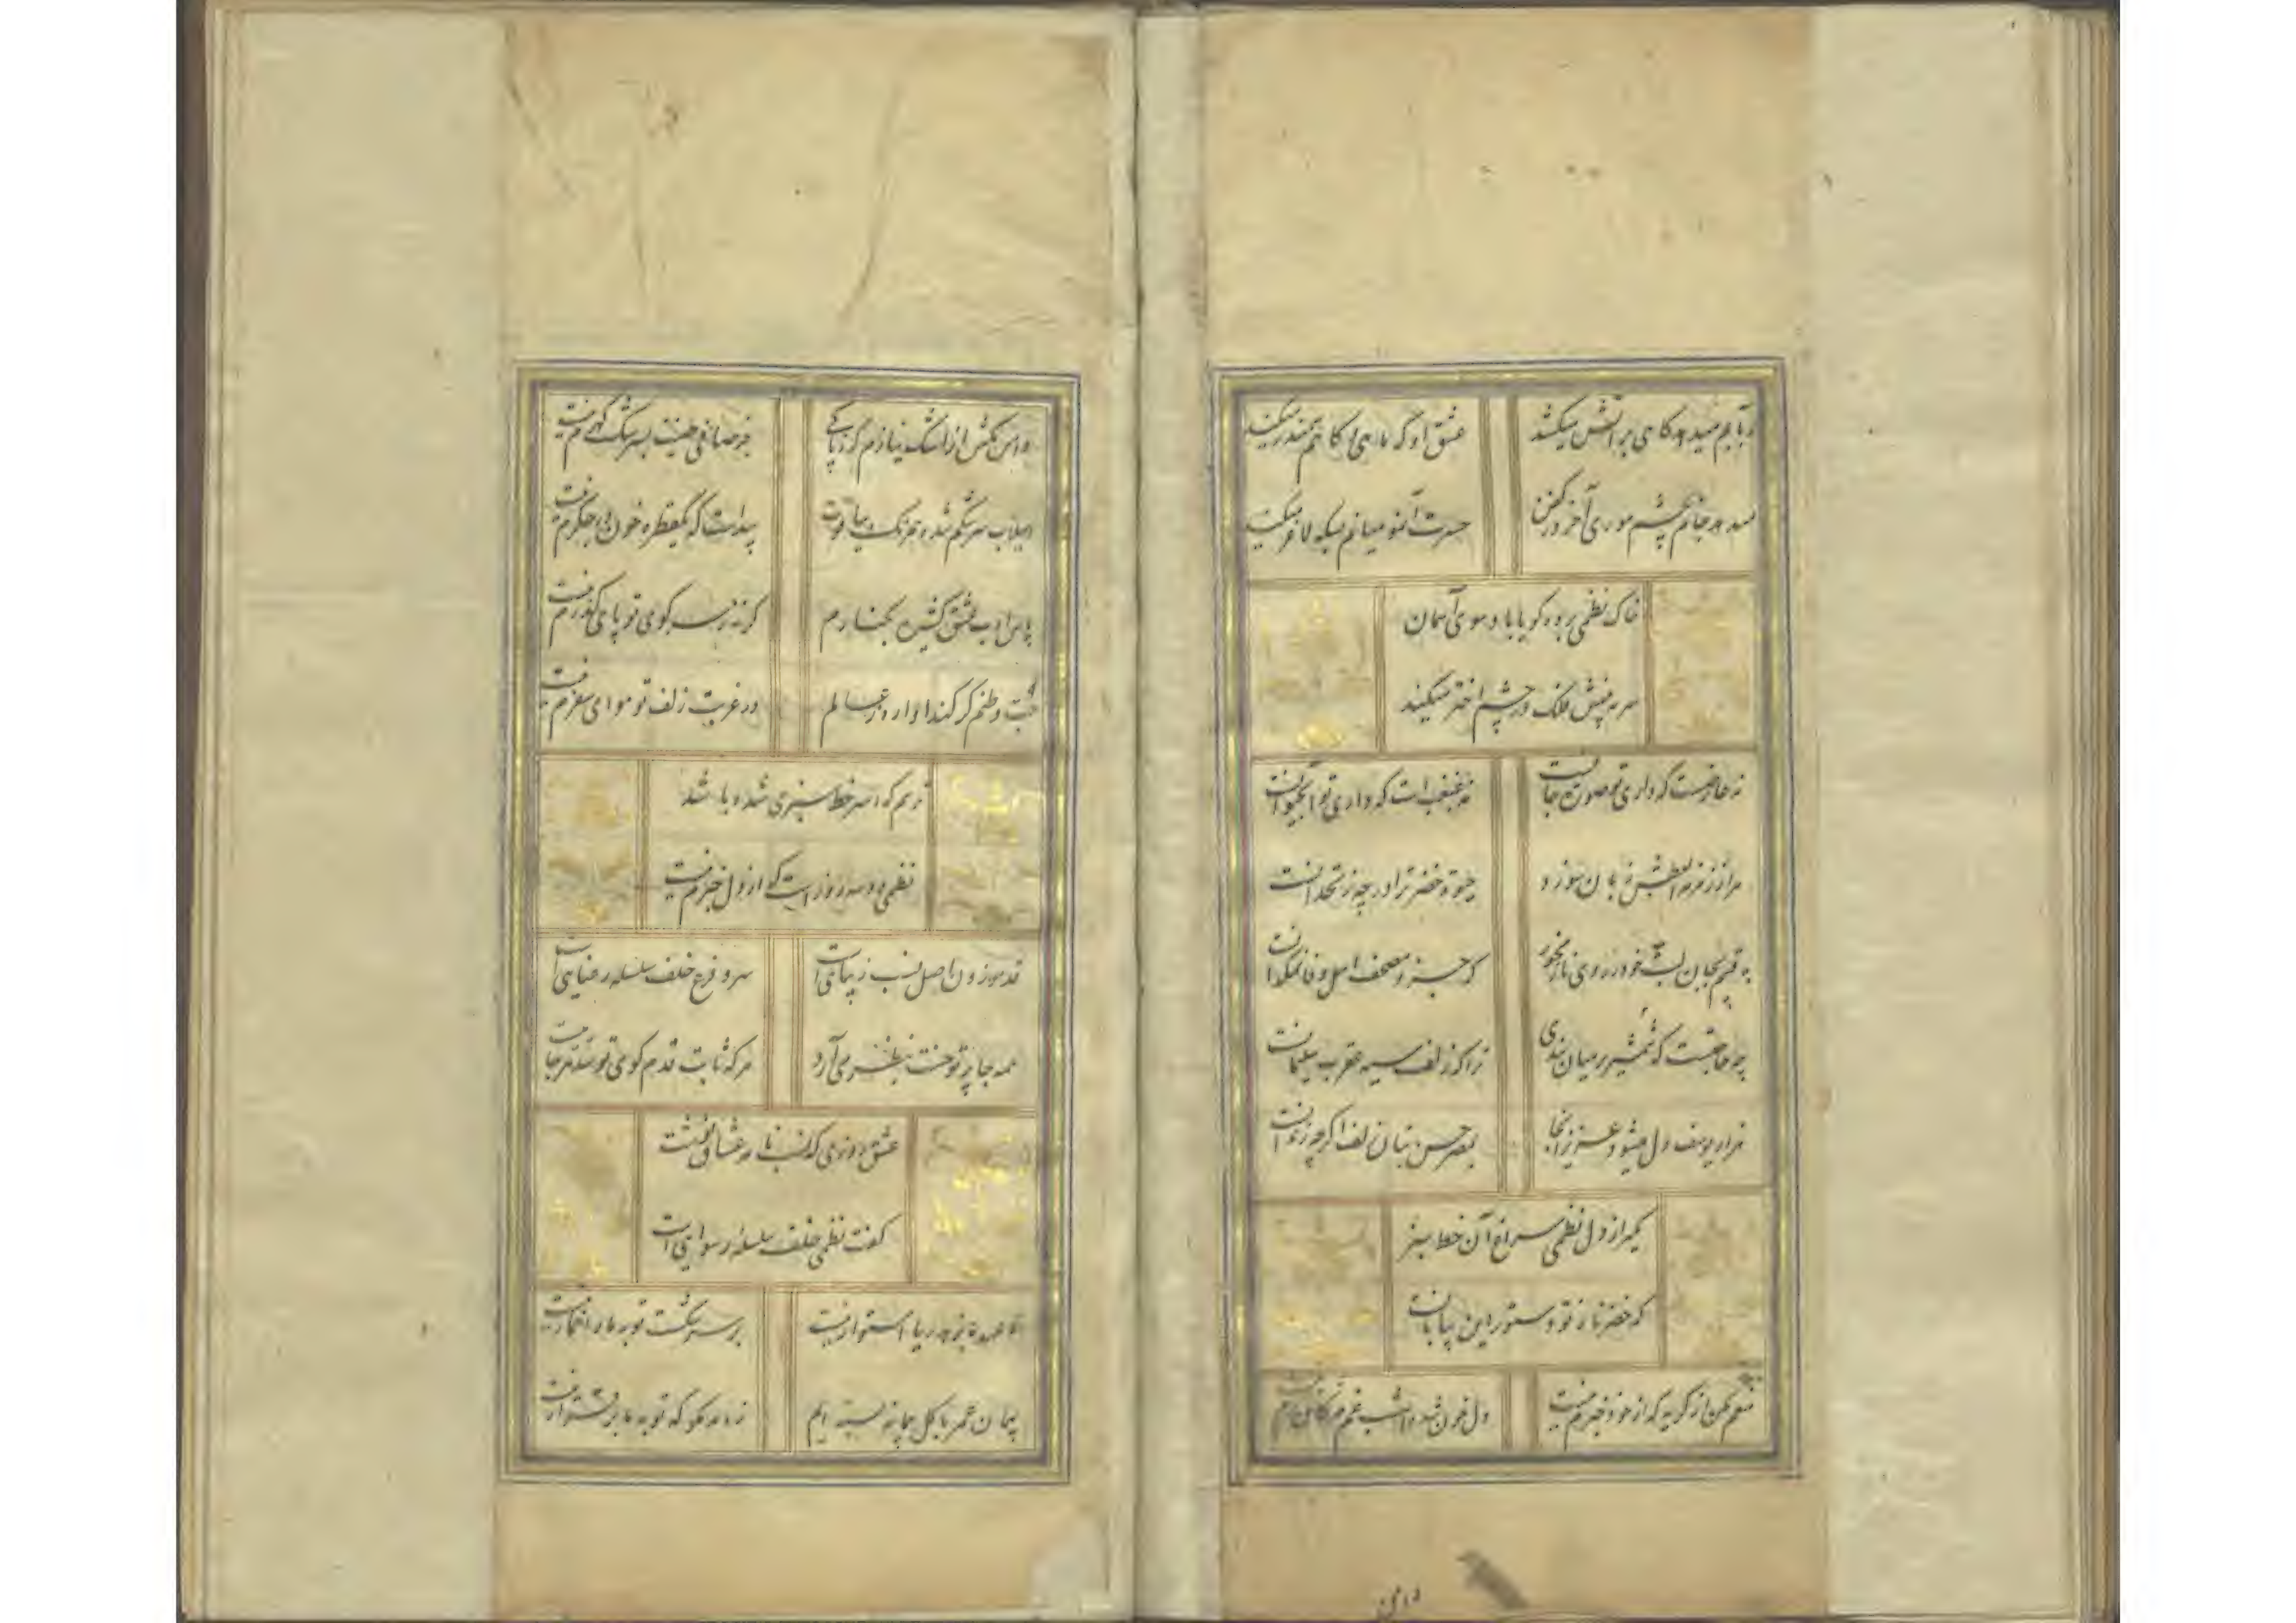 در آبم میدهد گاهی بر آتش میکشد
عشق او گه ماهی و گاهم سمندر میکند
میدهد جانم بچشم موری آخر در کفن
حسرت آنمو میانم بسکه لاغر میکند
خاک نظمی بر در کو یا با و سوی آسمان
سرمه پنیش فلک در چشم اختر میکند
نه عارضست که داری تو صورت جانست
نه غبغب است که داری تو آبحیوانست
مرا ز زمزمه لطفش زبان سوزد
چو خضر ترا در چه زنخدانست
به قسم بجان لبت خود ز روی ناز مخور
که چهره مصحف اهل وفا نمکدانست
چه حاجتست که شمشیر بر میان بندی
ترا که زلف سیه عقرب سلیمانست
هزار یوسف دل میشود عزیز آنجا
بمصر حسن بتان زلف اگرچه زندانست
مگیر از دل نظمی سراغ آن خط سبز
که خضر تازه تو دستور این بیابانست
منعم مکن از گریه که از خود خبرم نیست
دل خون شد و امشب غم
دامن
دامن مکش از اشک نیازم که ز پاکی
جز صافی طینت بسرشک گهرم نیست
سیلاب سرشکم شده همرنگ بیاقوت
پیداست که یکقطره خون در جگرم نیست
پاس ادب عشق کشیده بکنارم
گرنه ز سر کوی تو پای گذرم نیست
حب وطنم گر کند آواره عالم
در غربت زلف تو هوای سفرم نیست
ترسم که اسیر خط سبزی شده باشد
نظمی دو سه روز است که از دل خبرم نیست
قد موزون اصل نسب زیبایی است
سرو فرع خلف سلسله رعنایی است
همه جا پرتو حسنت بنظر می آرد
هر که ثابت قدم کوی تو شد هر جایی است
عشق روزی که نسب نامه عشاق نوشت
گفت نظمی خلف سلسله رسوایی است
تا عهد ما بزهد ریا استوار نیست
بر سر شکست توبه ما را خمار نیست
پیمان عمر با گل پیمانه بسته ایم
زاهد مگو که توبه ما برقرار نیست